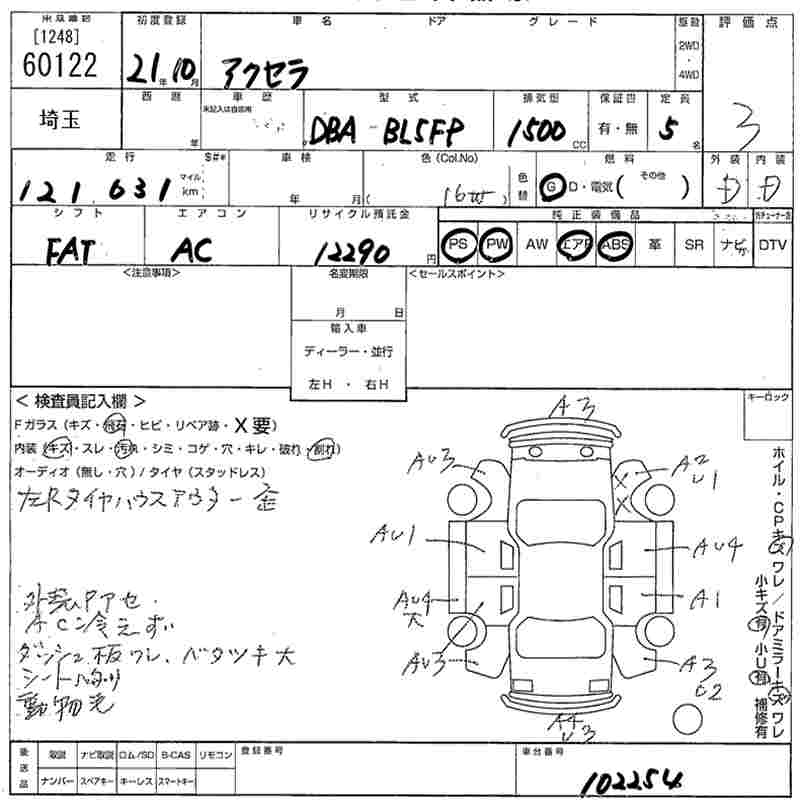 初度登録 車名 ドア グレード 駆動 評価点
[1248]
60122
21年10月 アクセラ
2WD
・
4WD
3
埼玉
西暦 車歴 型式 排気量 保証書 定員
未記入は自家用
年 DBA - BL5FP 1500 CC 有・無 5名
走行 S#* 車検 色(Col.No) 色替 燃料 外装 内装
121,631 マイル km 年 月( 16W ) G D・電気( その他 ) D D
シフト エアコン リサイクル預託金 純正装備品
FAT AC 12290円 PS PW AW エアB ABS 革 SR ナビ DTV
<注意事項> 名変期限 <セールスポイント>
月 日
輸入車
ディーラー・並行
左H ・ 右H
< 検査員記入欄 > キーロック
Fガラス(キズ・飛石・ヒビ・リペア跡・X要)
内装(キズ・スレ・汚れ・シミ・コゲ・穴・キレ・破れ・割れ)
オーディオ(無し・穴)/タイヤ(スタッドレス)
左Rタイヤハウスアウター歪
外装Pアセ・
AC冷えず
ダッシュ板ワレ、バタツキ大
シート
動物毛
A3
AU3
A2
U1
X
X
AU1
AU4
AU4
大
A1
AU3
A3
C2
A4
U3
ホイル・CPキズ ワレ/ドアミラーキズ ワレ
小キズ有/小U有 補修有
後送品 取説 ナビ取説 ロム/SD B-CAS リモコン 登録番号 車台番号
ナンバー スペアキー キーレス スマートキー
102254